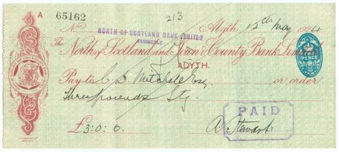 A 65162 No 213 Alyth, 15th May 1924
NORTH OF SCOTLAND BANK LIMITED
The North of Scotland and Town & County Bank Limited
ALYTH.
Pay to C. S. Mitchell Esq or order
Three pounds Stg
£3:0:0. A. Stewart
PAID